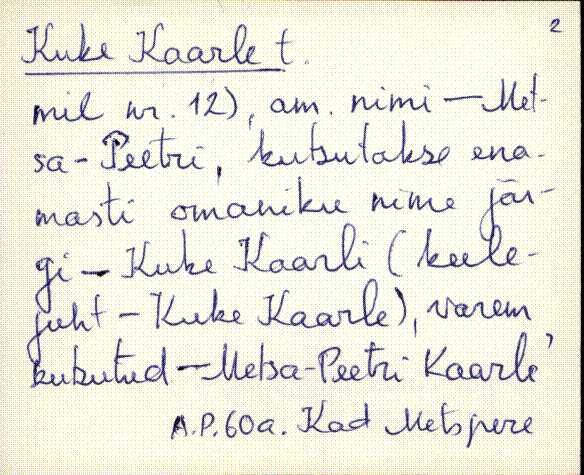 2
Kuke Kaarle t.
mil nr. 12), am. nimi – Met-
sa-Peetri, kutsutakse ena-
masti omaniku nime jär-
gi – Kuke Kaarli (keele-
juht – Kuke Kaarle), varem
kutsutud – Metsa-Peetri Kaarle'
A.P. 60a. Kad Metspere